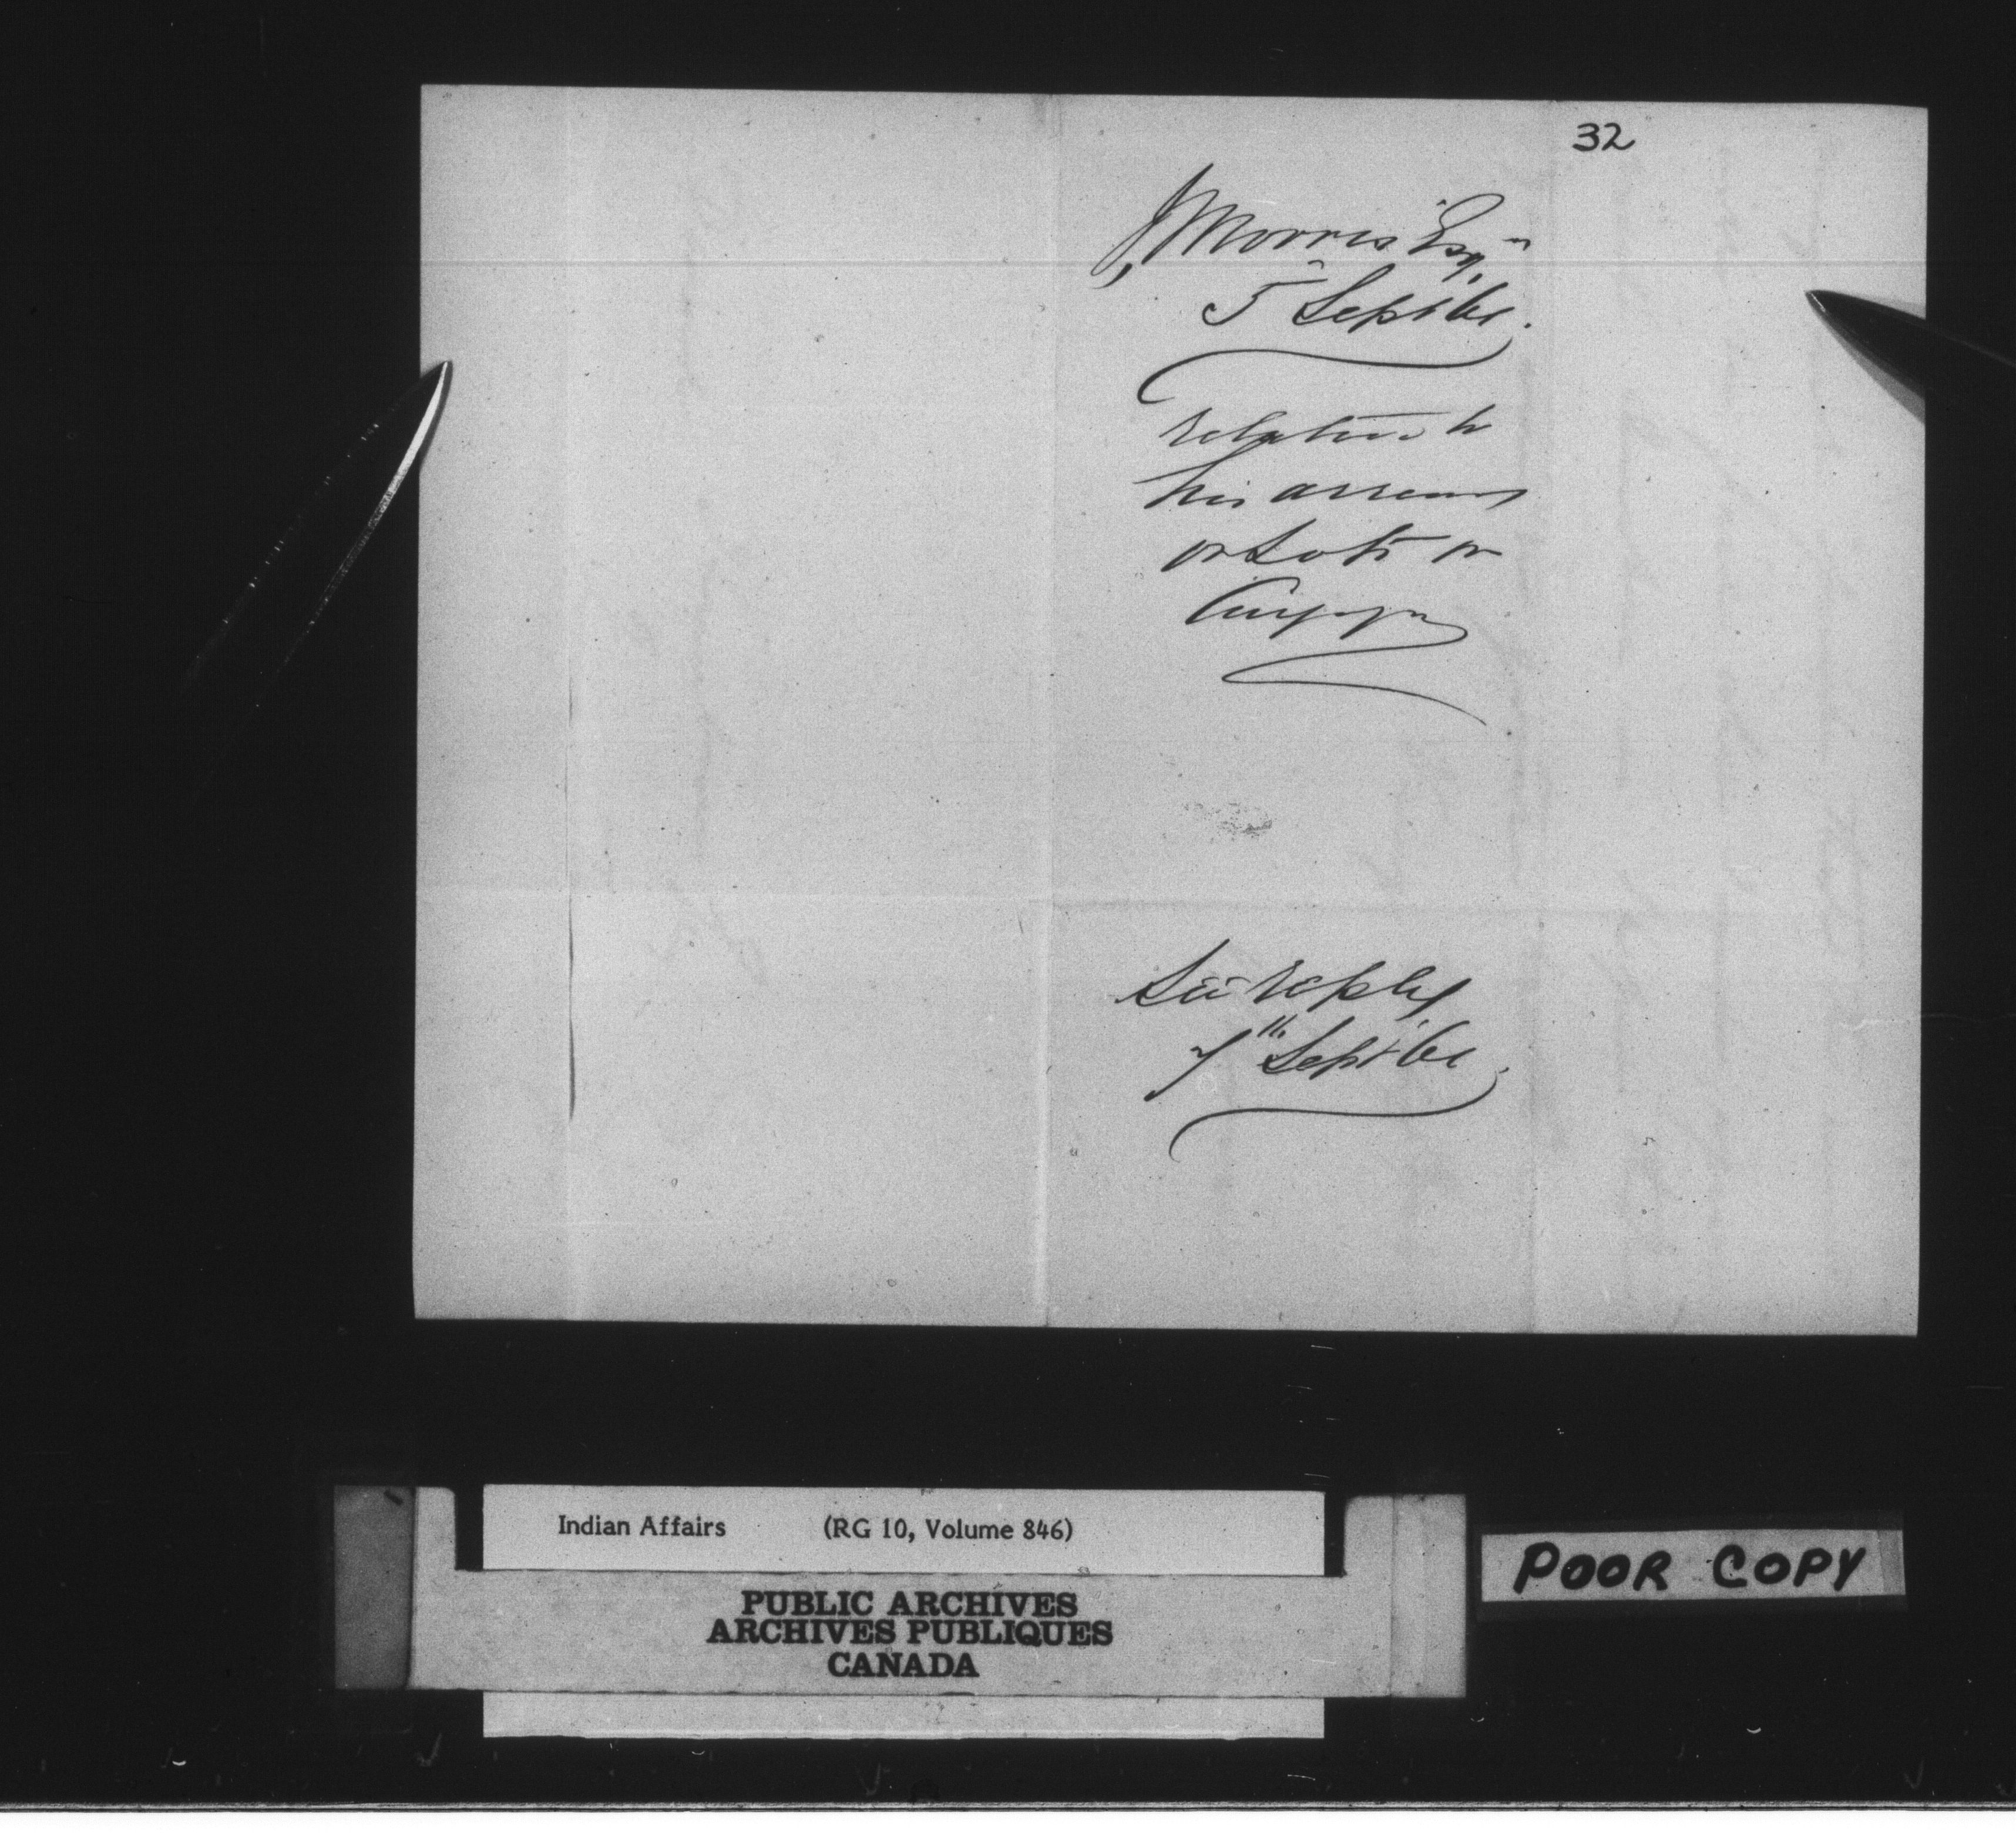 32
J Morris Esqr
5 Sept 61.
relative to
his arrears
on Lots in
Cayuga
See reply
7th Sept 61.
Indian Affairs (RG 10, Volume 846)
PUBLIC ARCHIVES
ARCHIVES PUBLIQUES
CANADA
POOR COPY